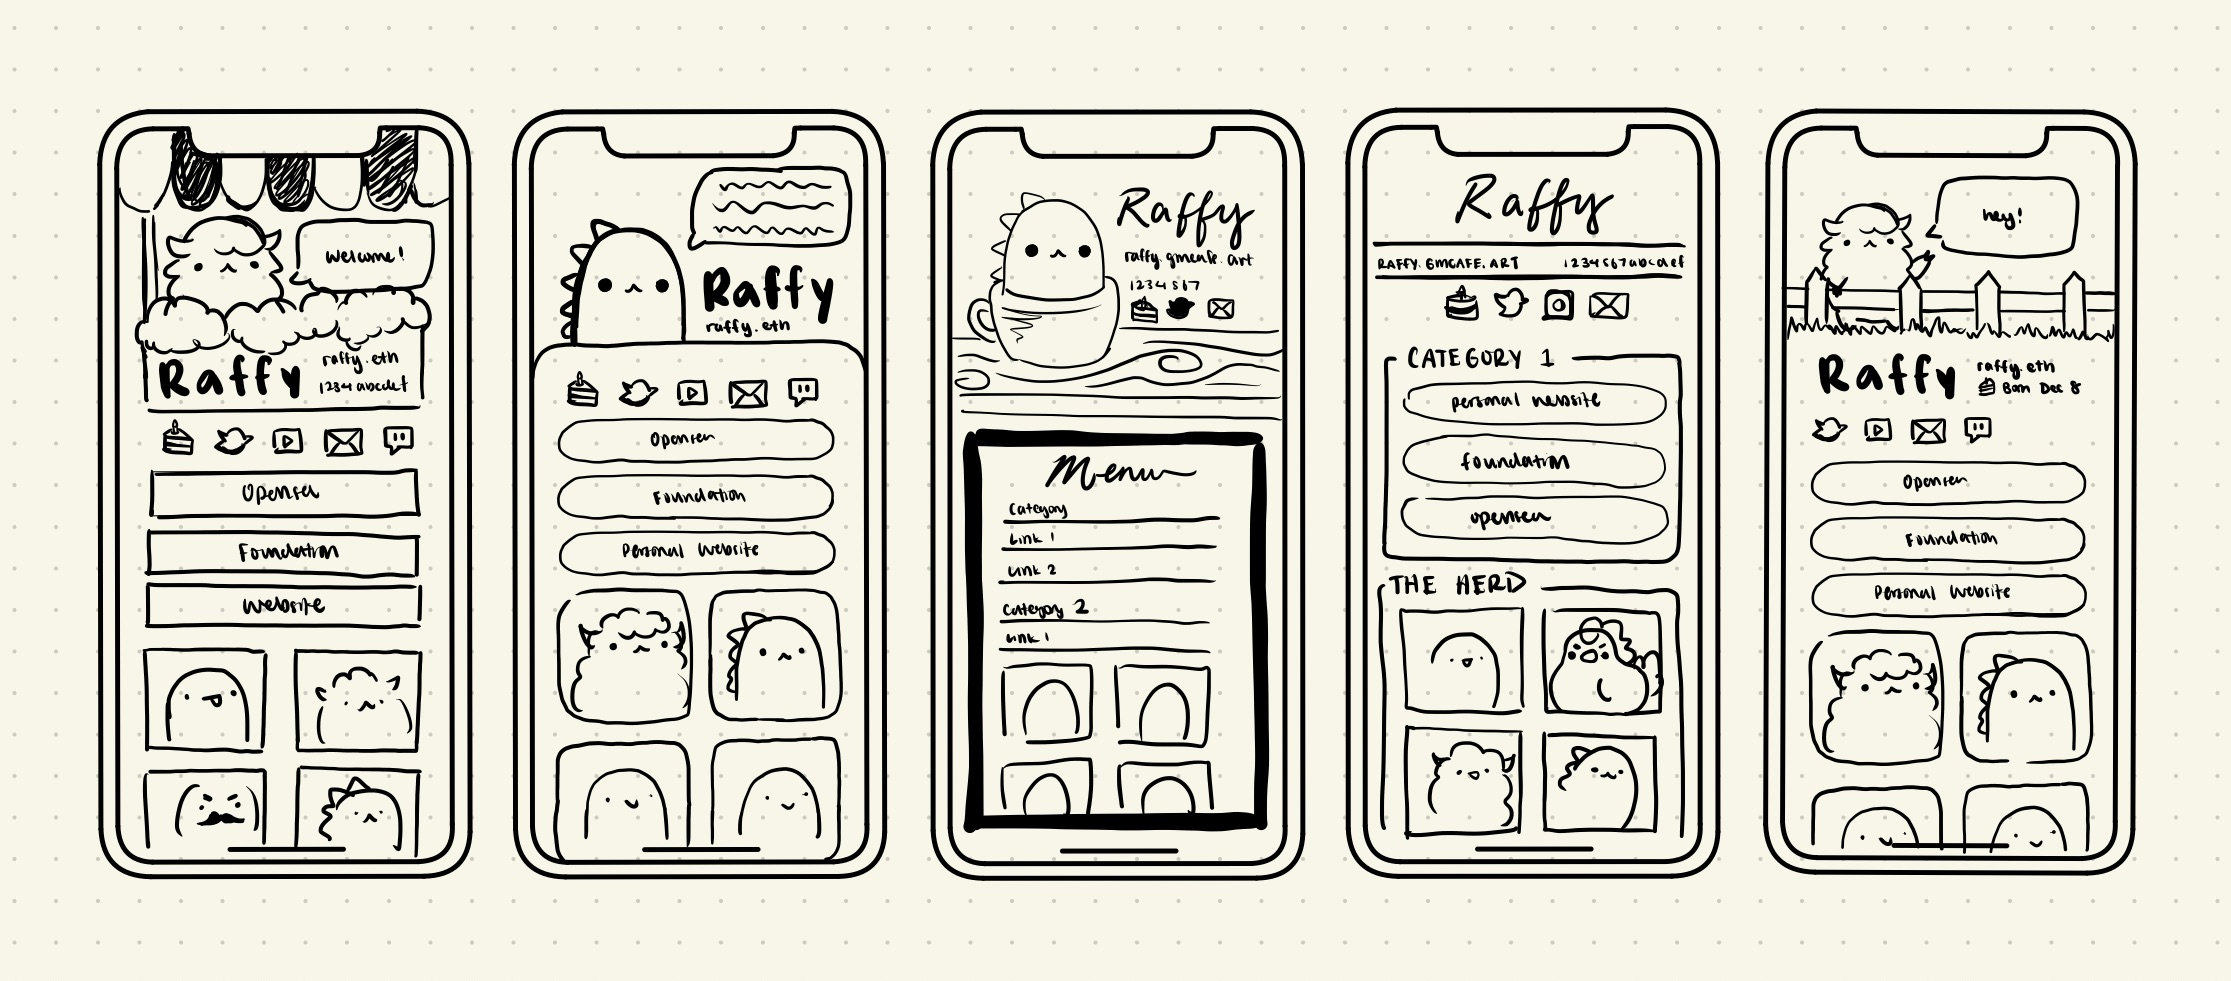 Welcome!
Raffy
raffy.eth
1234abcdef
Opensea
Foundation
Website
Raffy
raffy.eth
Opensea
Foundation
Personal Website
Raffy
raffy.gmcafe.art
1234567
Menu
Category
Link 1
Link 2
Category 2
Link 1
Raffy
RAFFY.GMCAFE.ART
1234567abcdef
CATEGORY 1
personal website
foundation
opensea
THE HERD
hey!
Raffy
raffy.eth
Born Dec 8
Opensea
Foundation
Personal Website